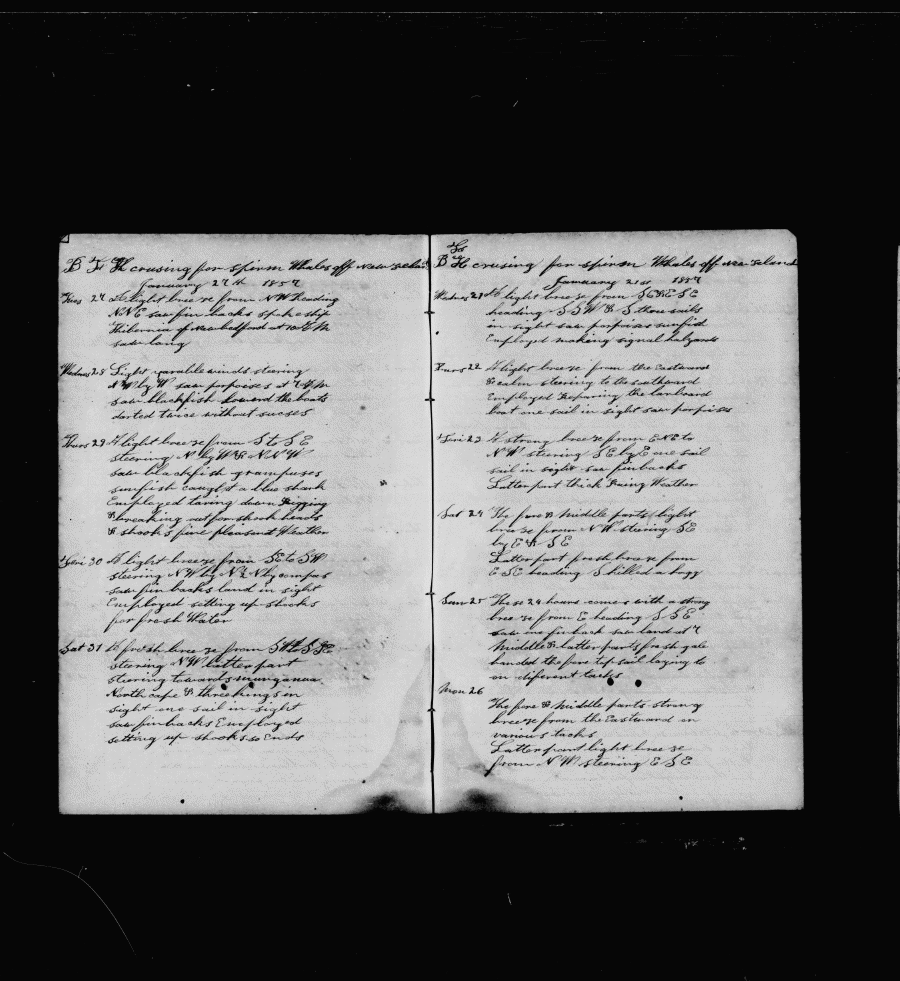 B F H crusing for spirm Whales off New Zeland
January 27th 1857
Tues 27 A light breeze from NW heading
NNE saw finbacks spoke ship
Hibernia of Newbedford at 10 AM
saw land
Wednes 28 Light variable winds steering
NW by W saw porpoises at 7 AM
saw blackfish lowerd the boats
darted twice without sucses
Thurs 29 A light breeze from S to SE
steering N by W & NNW
saw blackfish grampuses
sunfish caught a blue shark
Employed taring down Rigging
& breaking out for shook heads
& shooks fine pleasant Weather
Fri 30 A light breeze from SE to SW
steering NW by N & N by compas
saw finbacks land in sight
Employed setting up shooks
for fresh Water
Sat 31 A fresh breeze from SW to S SE
steering NW latter part
steering towards
North cape & three kings in
sight one sail in sight
saw finbacks Employed
setting up shooks so Ends
B F H crusing for spirm Whales off New Zeland
January 21st 1857
Wednes 21 A light breeze from SE & ESE
heading SSW & S three sails
in sight saw porpoises sunfish
Employed making signal halyards
Thurs 22 A light breeze from the Eastward
& calm steering to the southward
Employed Reparing the larboard
boat one sail in sight saw porpoises
Fri 23 A strong breeze from ENE to
NW steering SE by E one sail
sail in sight saw finbacks
Latter part thick Rainy Weather
Sat 24 The fore & Middle parts light
breeze from NW steering SE
by E & SE
Latter part fresh breeze from
ESE heading S killed a hogg
Sun 25 These 24 hours comes with a strong
breeze from E heading SSE
saw one finback saw land at 7
Middle & latter parts fresh gale
handed the fore topsail laying to
on different tacks
Mon 26
The fore & Middle parts strong
breeze from the Eastward on
various tacks
Latter part light breeze
from NW steering ESE